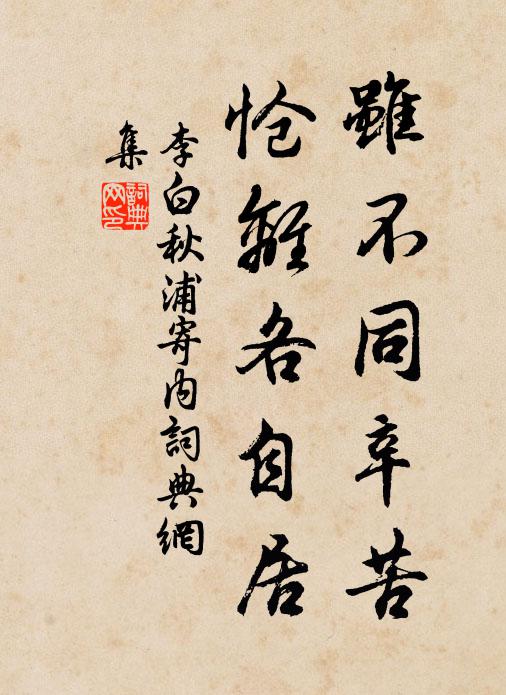 雖不同辛苦
愴離各自居
李白秋浦寄內詞典網
集
詞典
网印